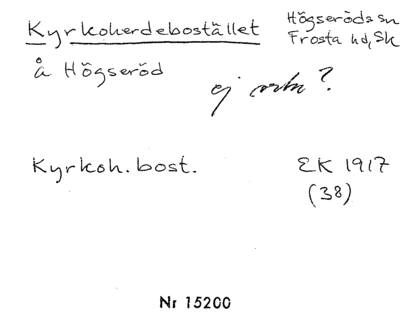 Kyrkoherdebostället
Högseröds sn
Frosta hd, Sk
å Högseröd
ej ?
Kyrkoh. bost.
EK 1917
(38)
Nr 15200